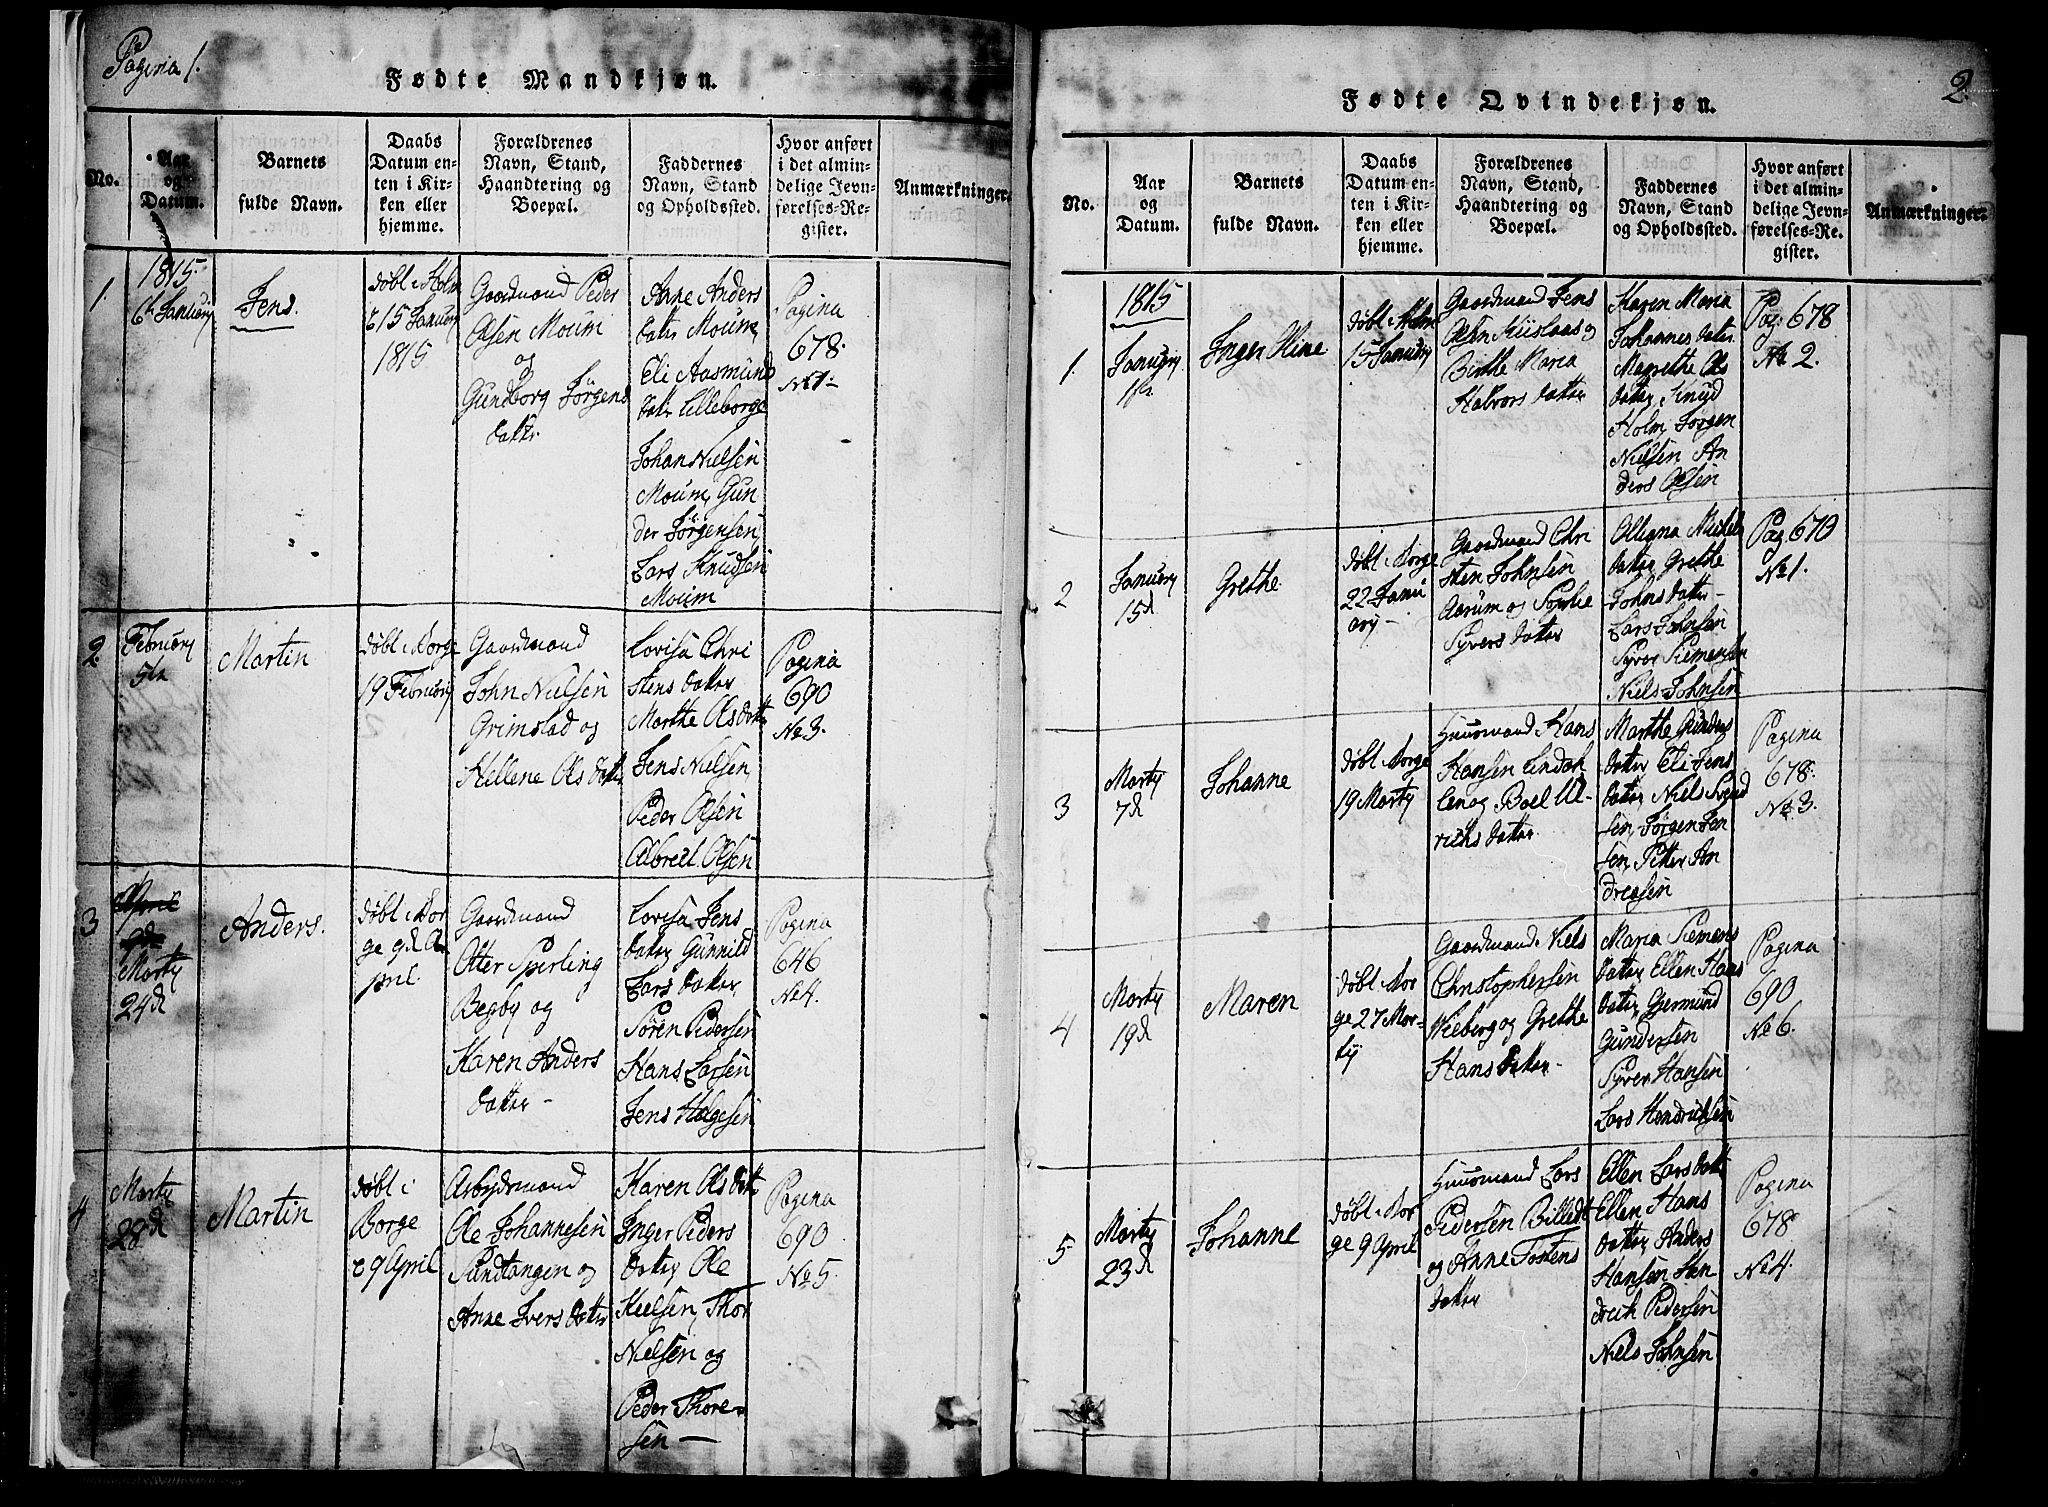 Pagina 1.
Fødte Mandkjøn.
No.
Aar
og
Datum.
Barnets
fulde Navn.
Daabs
Datum en-
ten i Kir-
ken eller
hjemme.
Forældrenes
Navn, Stand,
Haandtering og
Boepæl.
Faddernes
Navn, Stand
og Opholdssted.
Hvor anført
i det almin-
delige Jevn-
førelses-Re-
gister.
Anmærkninger.
1.
1815.
6te Januarij
Jens.
døbt i Holm
15 Januarij
1815
Gaardmand Peder
Olsen Moum
og
Gundborg Jørgens
datter.
Anne Anders
datter Moum,
Eli Aasmund
datter Lilleborge
Johan Nielsen
Moum, Gun
der Jørgensen,
Lars Knudsen
Moum
Pagina
678.
No 1-
2.
Februarij
5te
Martin
døbt i Borge
19 Februarij
Gaardmand
John Nielsen
Grimstad og
Hellene Olsdatter
Lovisa Chri
stens datter
Marthe Olsdatter
Jens Nielsen,
Peder Olsen
Albrect Olsen
Pagina
690
No 3.
3
April
9de
Martij
24d
Anders.
døbt i Bor
ge 9d A
pril.
Gaardmand
Otter Sperling
Begby og
Karen Anders
datter -
Lovisa Jens
datter Gunnild
Lars datter,
Søren Pedersen
Hans Larsen
Jens Helgesen
Pagina
646
No 4.
4
Martij
28d
Martin
døbt i
Borge
9 April
Arbejdsmand
Ole Johannesen
Sandtangen og
Anne Ivers datter
Karen Olsdatter
Inger Peders
datter Ole
Nielsen, Thor
Nielsen og
Peder Thore-
sen -
Pagina
690
No 5.
2.
Fødte Qvindekjøn.
No.
Aar
og
Datum.
Barnets
fulde Navn.
Daabs
Datum en-
ten i Kir-
ken eller
hjemme.
Forældrenes
Navn, Stand,
Haandtering og
Boepæl.
Faddernes
Navn, Stand
og Opholdssted.
Hvor anført
i det almin-
delige Jevn-
førelses-Re-
gister.
Anmærkninger.
1.
1815
Januarij
1ste
Inger Stine
døbt i Holm
15 Januarij
Gaardmand Jens
Olsen og
Birthe Maria
Halvors datter
Karen Maria
Johannes datter
Magrethe Ols
datter, Knud
Holm, Jørgen
Nielsen An
ders Olsen
Pag: 678
No 2.
2
Januarij
15d
Grethe
døbt i Borge
22 Janu
arij -
Gaardmand Chri
sten Johnsen
Aarum og Sophie
Syvers datter
Michels
datter, Grethe
Johns datter -
Lars Johnsen
Syver Siemensen
Niels Johnsen
Pag 670
No 1.
3
Martij
7d
Johanne
døbt i Borge
19 Martij
Huusmand Hans
Hansen
og Boel Ul-
richs datter
Marthe Gunders
datter Eli Jens
datter Niels Svend
sen, Jørgen Jen
sen, Petter An
dreasen
Pagina
678.
No 3.
4
Martij
19d
Maren
døbt i Bor
ge 27 Mar-
tij
Gaardmand Niels
Christophersen
Weeberg og Grethe
Hans datter -
Maria Siemens
datter Ellen Hans
datter, Germund
Gundersen
Syver Hansen
Lars Hendrichsen
Pagina
690
No 6.
5
Martij
23d
Johanne
døbt i Bor
ge 9 April
Huusmand Lars
Pedersen Billedt
og Anne Tostens
datter
Ellen Lars datter
Ellen Hans
datter, Anders
Hansen Hen
drich Pedersen
Niels Johnsen
Pagina
678
No 4.